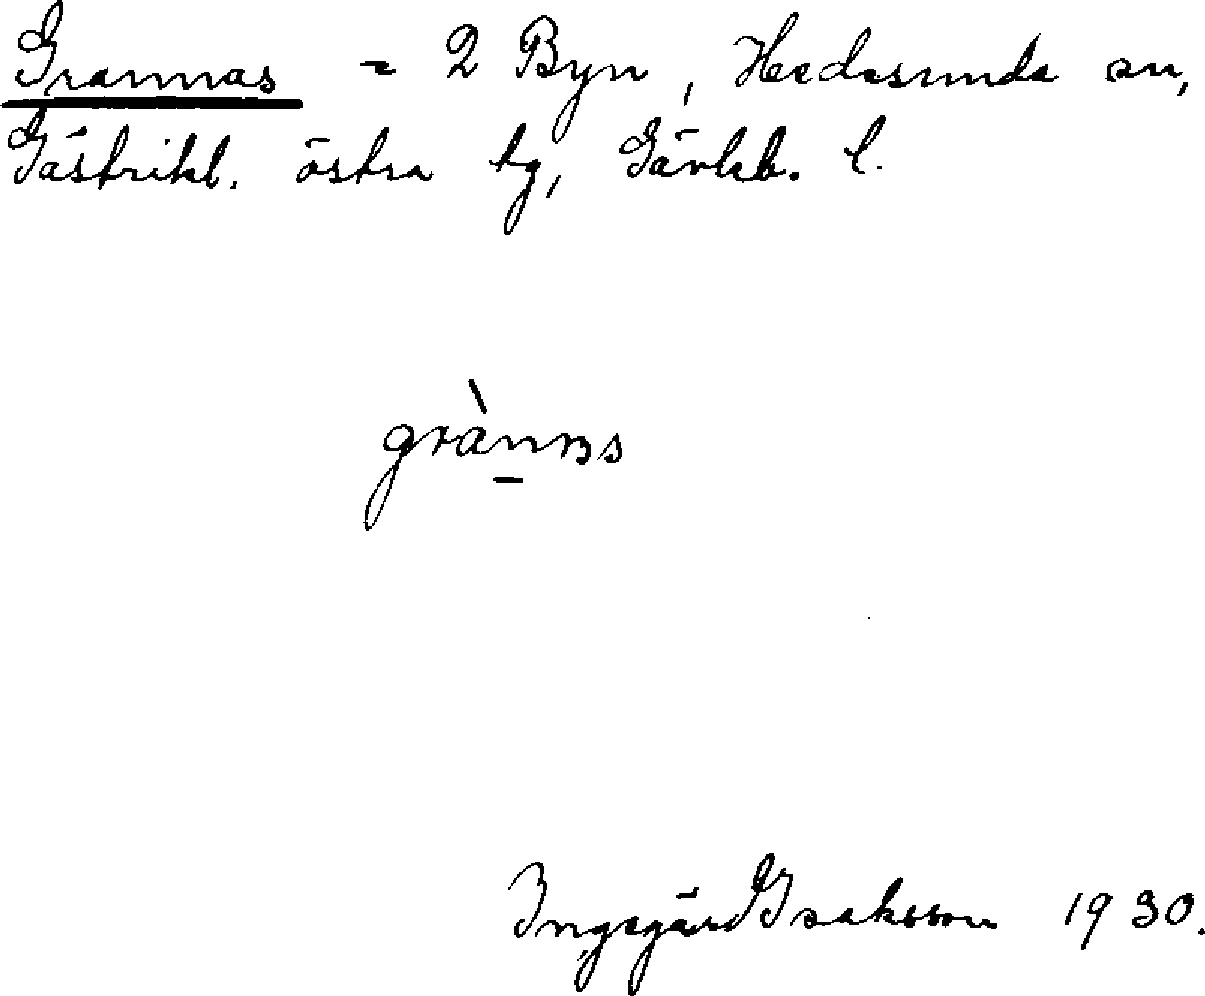 Grannas = 2 Byn, Hedesunda sn,
Gästrikl. östra tg, Gävleb. l.
grànnas
Ingegärd Isaksson 1930.